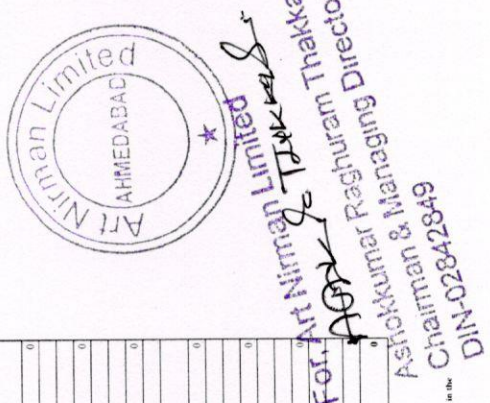 Art Nirman Limited
AHMEDABAD
For, Art Nirman Limited
Ashokkumar Raghuram Thakka
Chairman & Managing Directo
DIN-02842849
in the
0
0
0
0
0
0
0